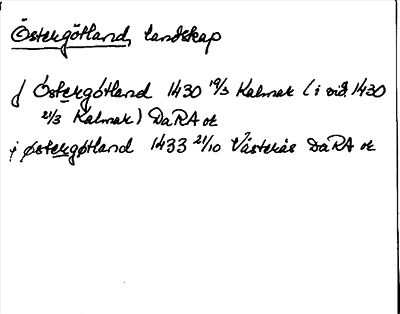 Östergötland, landskap
j Östergötland 1430 19/3 Kalmar (i vid. 1430
21/3 Kalmar) DaRA or
j østergøtland 1433 21/10 Västerås DaRA or